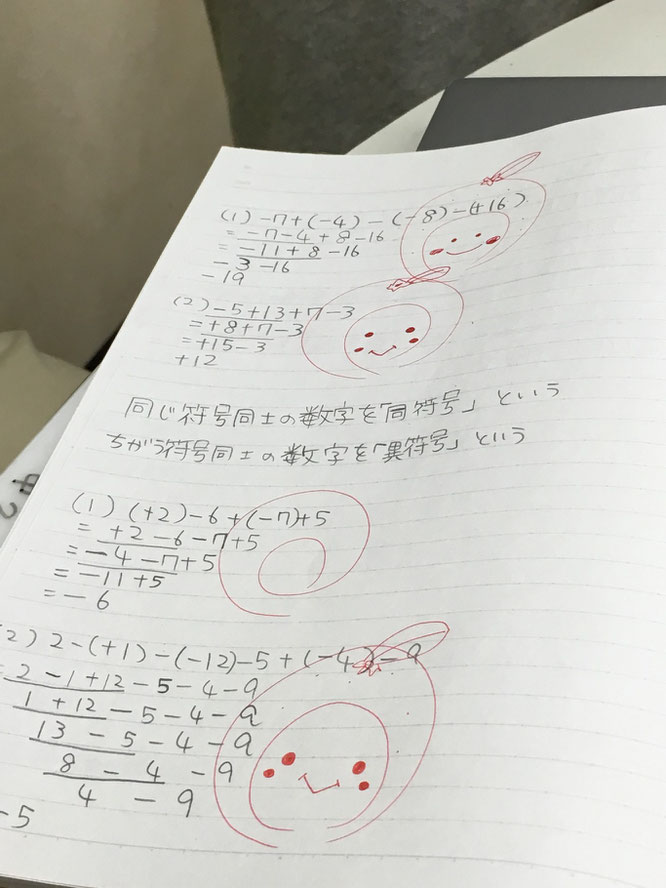 (1) -7+(-4)-(-8)-(+16)
= -7-4+8-16
= -11+8-16
-3-16
-19
(2) -5+13+7-3
= +8+7-3
= +15-3
+12
同じ符号同士の数字を「同符号」という
ちがう符号同士の数字を「異符号」という
(1) (+2)-6+(-7)+5
= +2-6-7+5
= -4-7+5
= -11+5
= -6
(2) 2-(+1)-(-12)-5+(-4)-9
= 2-1+12-5-4-9
1+12-5-4-9
13-5-4-9
8-4-9
4-9
-5